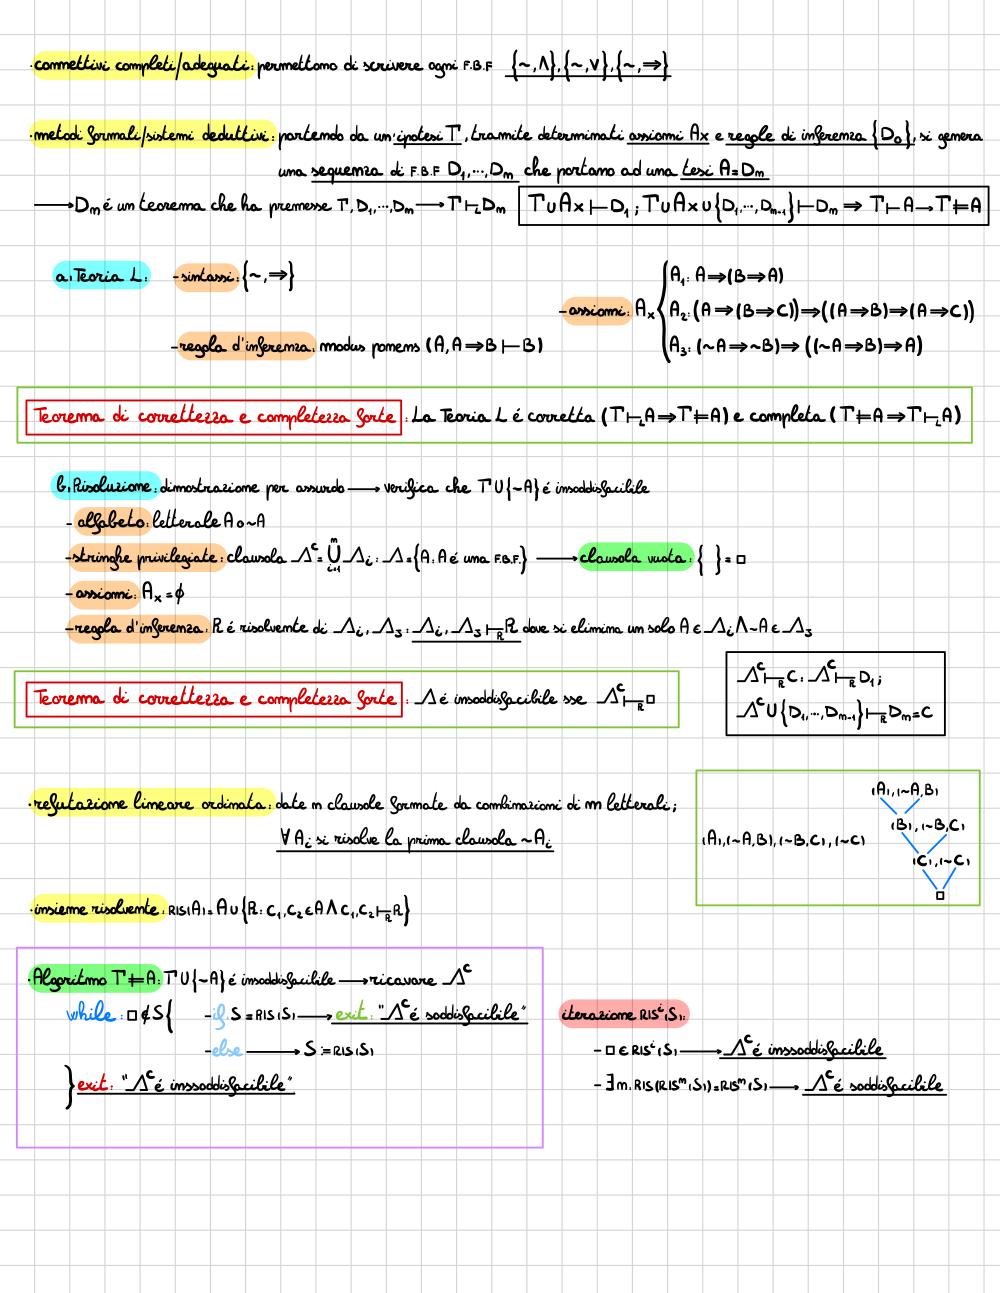 ·connettivi completi/adeguati: permettono di scrivere ogni F.B.F {~,∧},{~,∨},{~,⇒}
·metodi formali/sistemi deduttivi: partendo da un'ipotesi Γ, tramite determinati assiomi Ax e regole di inferenza {D₀}, si genera
una sequenza di F.B.F D₁,...,Dₙ che portano ad una tesi A=Dₙ
→Dₙ é un teorema che ha premesse Γ,D₁,...,Dₙ→Γ⊢_L Dₙ
Γ∪Ax⊢D₁; Γ∪Ax∪{D₁,...,Dₙ₋₁}⊢Dₙ ⇒ Γ⊢A→Γ⊨A
a. Teoria L: -sintassi: {~,⇒}
-assiomi: Ax {
A₁: A⇒(B⇒A)
A₂: (A⇒(B⇒C))⇒((A⇒B)⇒(A⇒C))
A₃: (~A⇒~B)⇒((~A⇒B)⇒A)
-regola d'inferenza: modus ponens (A, A⇒B⊢B)
Teorema di correttezza e completezza forte: La Teoria L é corretta (Γ⊢_L A⇒Γ⊨A) e completa (Γ⊨A⇒Γ⊢_L A)
b. Risoluzione: dimostrazione per assurdo→verifica che Γ∪{~A} é insoddisfacibile
-alfabeto: letterale A o ~A
-stringhe privilegiate: clausola Δᶜ=⋃ⁿᵢ₌₁Δᵢ: Δ={A: A é una F.B.F.} →clausola vuota: { }=□
-assiomi: Ax=ϕ
-regola d'inferenza: R é risolvente di Δᵢ,Δ₃: Δᵢ,Δ₃⊢_R R dove si elimina un solo A∈Δᵢ∧~A∈Δ₃
Teorema di correttezza e completezza forte: Δ é insoddisfacibile sse Δᶜ⊢_R □
Δᶜ⊢_R C: Δᶜ⊢_R D₁;
Δᶜ∪{D₁,...,Dₙ₋₁}⊢_R Dₙ=C
·refutazione lineare ordinata: date n clausole formate da combinazioni di m letterali;
∀Aᵢ si risolve la prima clausola ~Aᵢ
(A),(~A,B),(~B,C),(~C)
(A),(~A,B)
(B),(~B,C)
(C),(~C)
□
·insieme risolvente: RIS(A)=A∪{R: C₁,C₂∈A∧C₁,C₂⊢_R R}
·Algoritmo Γ⊨A: Γ∪{~A} é insoddisfacibile→ricavare Δᶜ
while: □∉S{ -if S=RIS(S)→exit: "Δᶜ é soddisfacibile"
-else→S:=RIS(S)
} exit: "Δᶜ é inssoddisfacibile"
iterazione RISⁱ(S):
-□∈RISⁱ(S)→Δᶜ é inssoddisfacibile
-∃n. RIS(RISⁿ(S))=RISⁿ(S)→Δᶜ é soddisfacibile